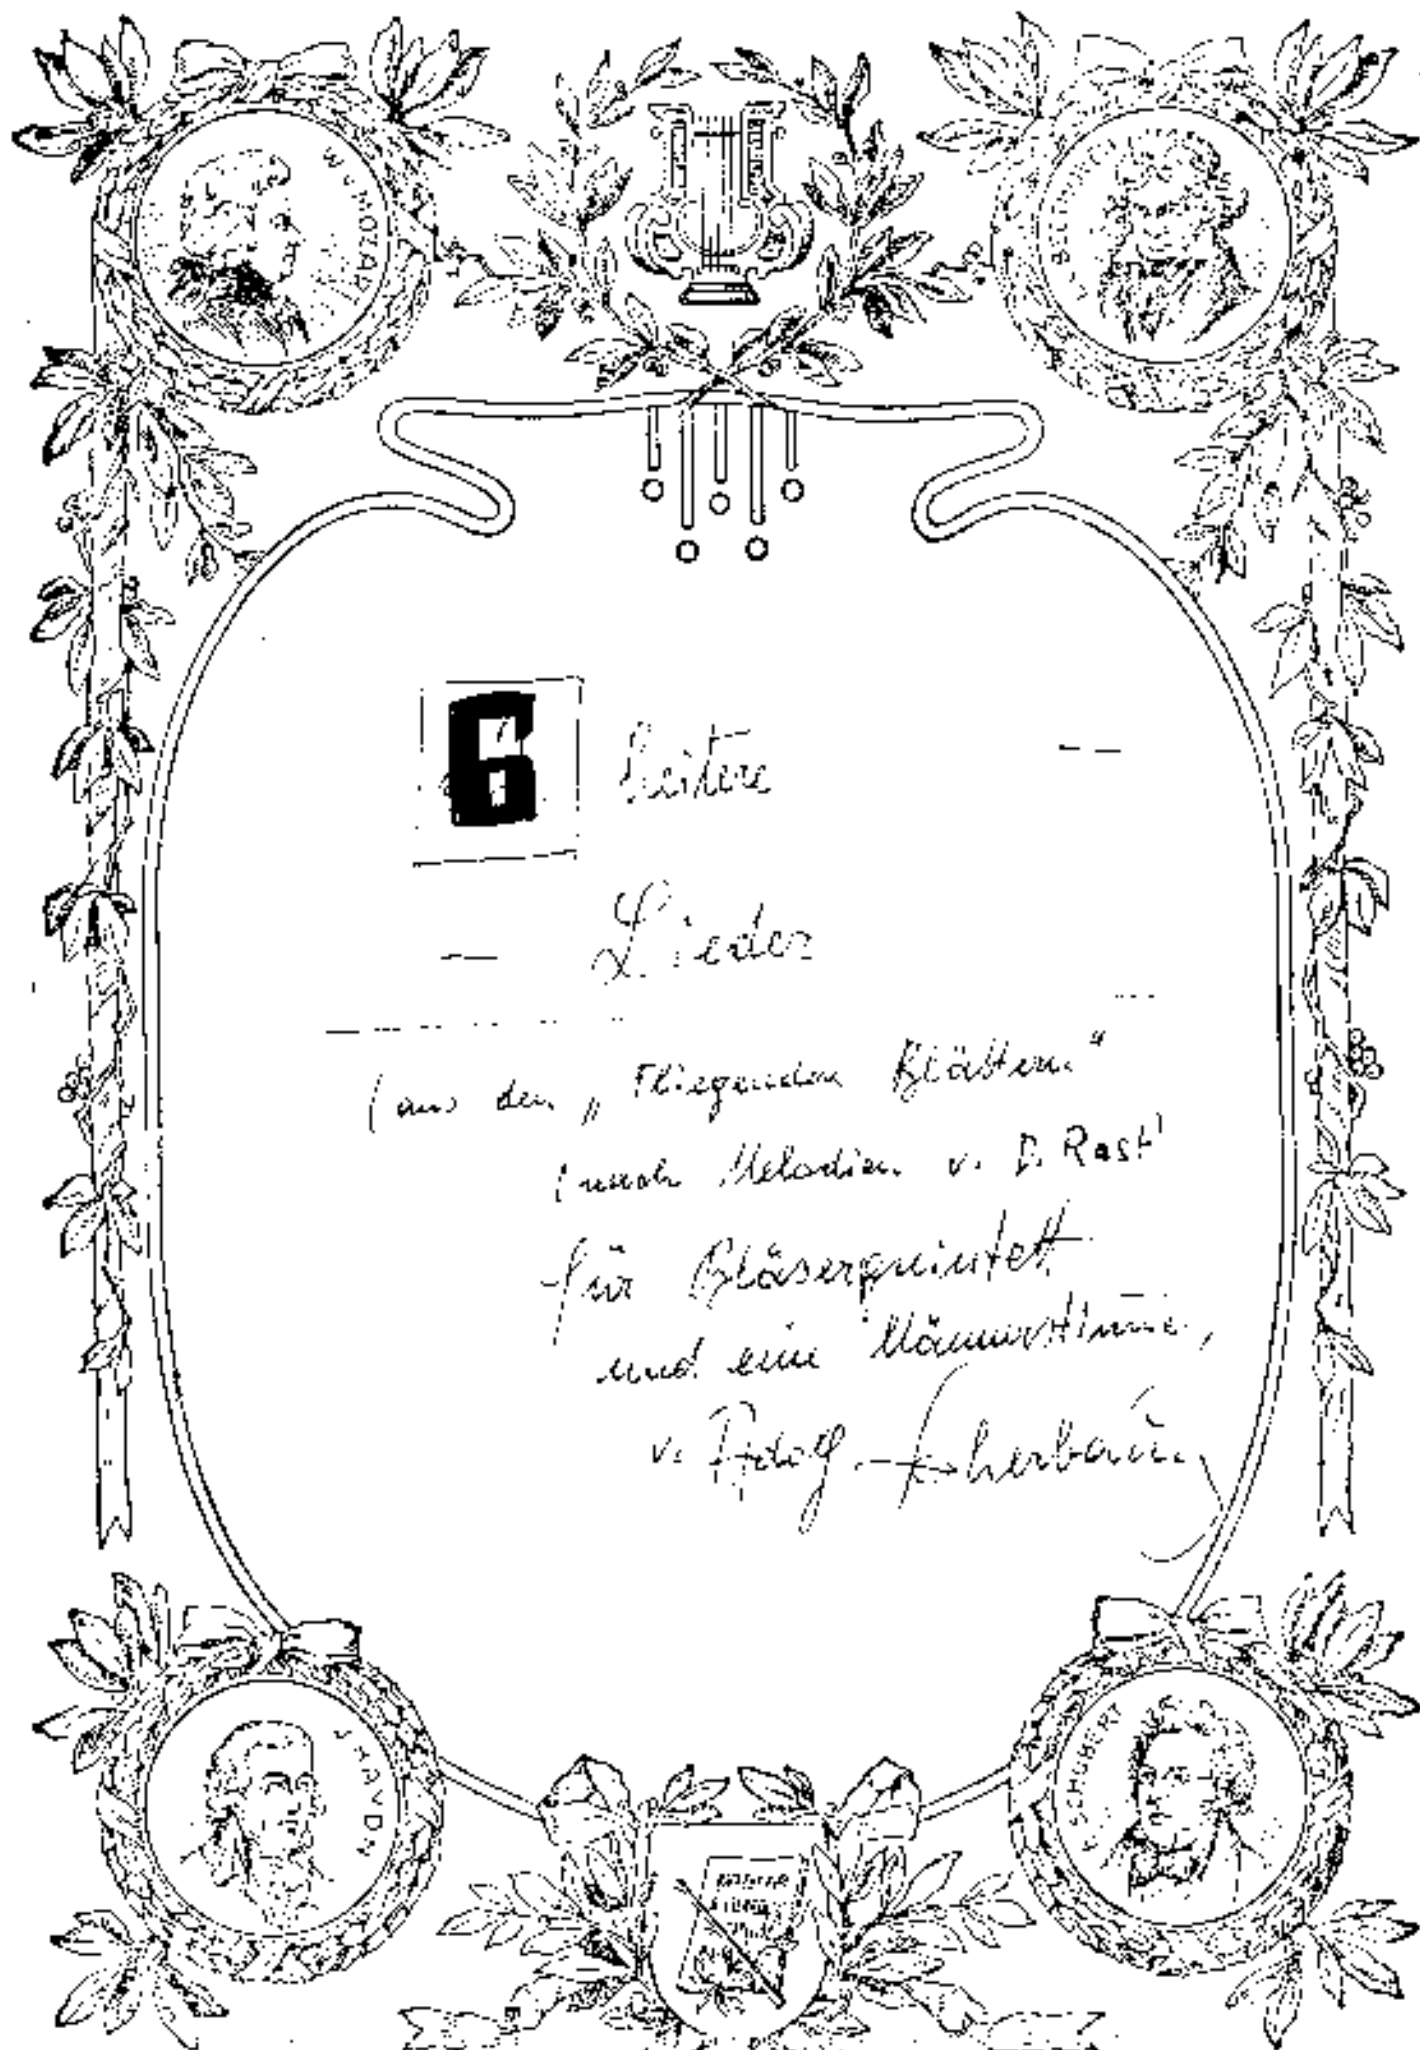 W. MOZART
BEETHOVEN
6 heitere
Lieder
(aus den „Fliegenden Blättern“
(nach Melodien v. D. Rast)
für Bläserquintett
und eine Männerstimme,
v. Adolf Scherbaum
J. HAYDN
SCHUBERT